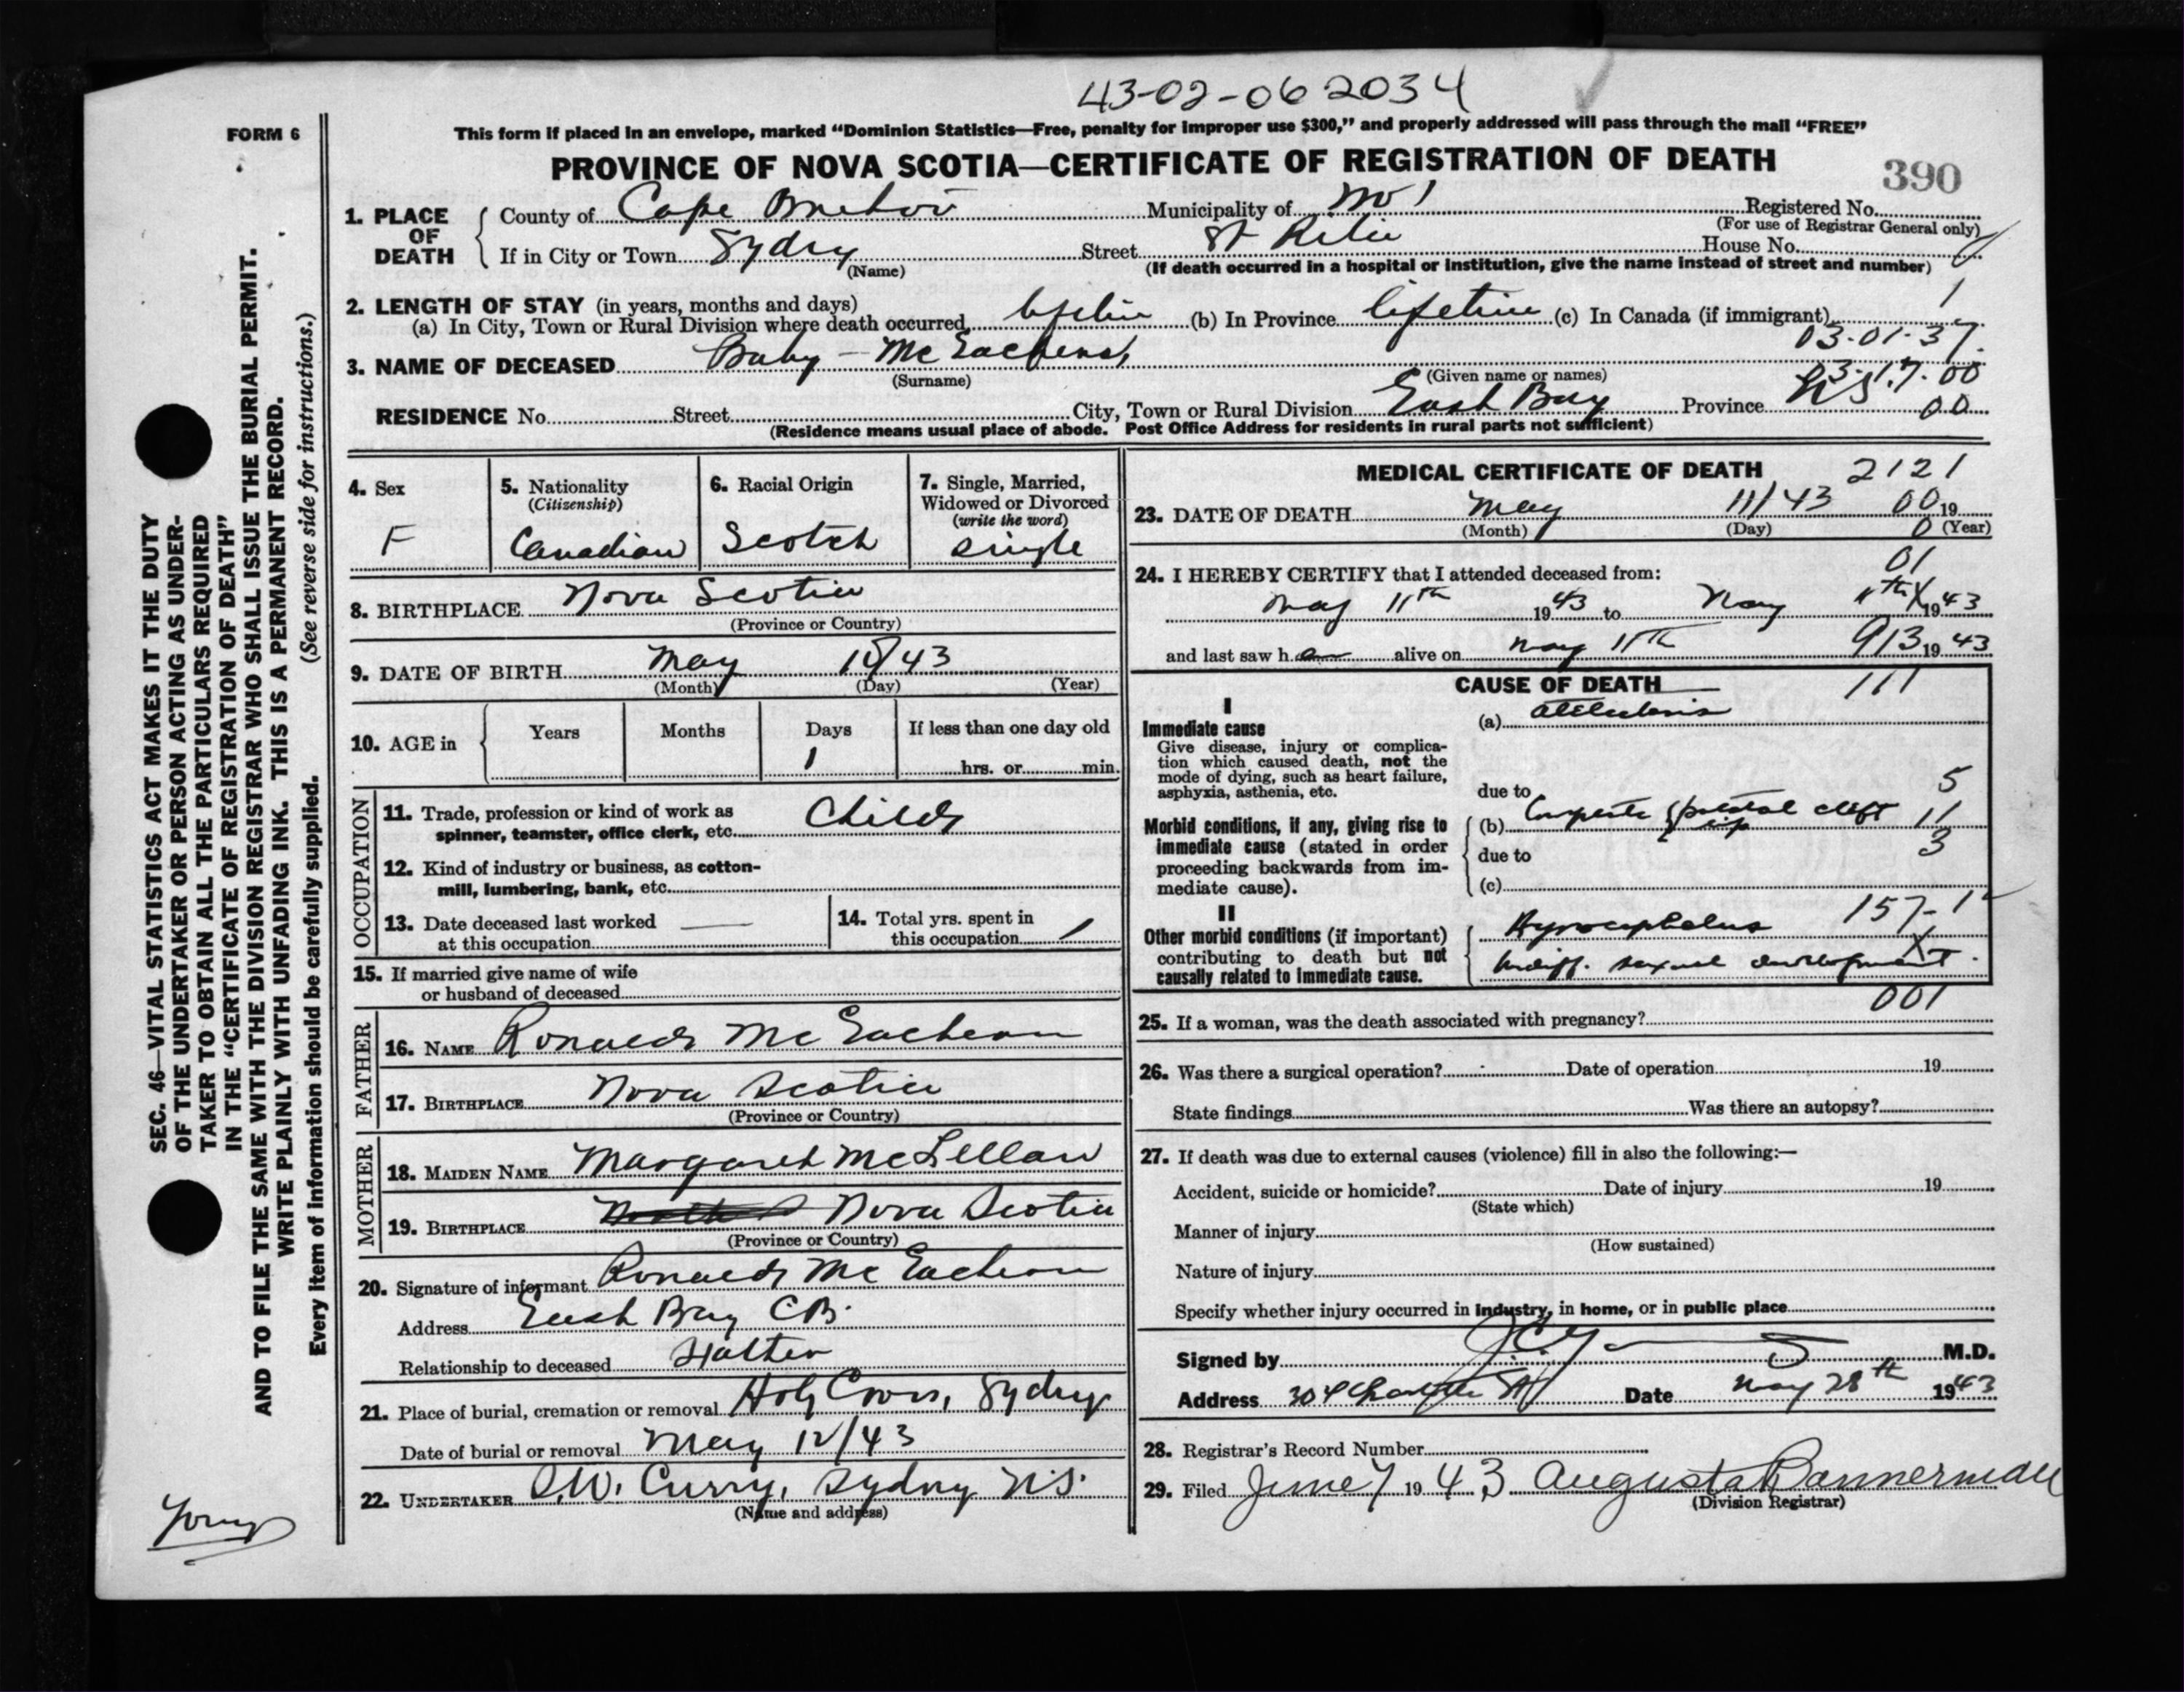 43-02-06 2034
FORM 6
This form if placed in an envelope, marked “Dominion Statistics—Free, penalty for improper use $300,” and properly addressed will pass through the mail “FREE”
PROVINCE OF NOVA SCOTIA—CERTIFICATE OF REGISTRATION OF DEATH
390
1. PLACE OF DEATH
County of Cape Breton Municipality of No 1 Registered No.
(For use of Registrar General only)
If in City or Town Sydney Street St Rita House No.
(Name) (If death occurred in a hospital or institution, give the name instead of street and number)
2. LENGTH OF STAY (in years, months and days) 1
(a) In City, Town or Rural Division where death occurred lifetime (b) In Province lifetime (c) In Canada (if immigrant)
03-01-37.
3. NAME OF DECEASED Baby - McEachern
(Surname) (Given name or names)
17-00
RESIDENCE No. Street City, Town or Rural Division East Bay Province NS 00
(Residence means usual place of abode. Post Office Address for residents in rural parts not sufficient)
4. Sex F
5. Nationality (Citizenship) Canadian
6. Racial Origin Scotch
7. Single, Married, Widowed or Divorced (write the word) Single
8. BIRTHPLACE Nova Scotia
(Province or Country)
9. DATE OF BIRTH May 10/43
(Month) (Day) (Year)
10. AGE in Years Months Days 1 If less than one day old hrs. or min.
OCCUPATION
11. Trade, profession or kind of work as spinner, teamster, office clerk, etc. Child
12. Kind of industry or business, as cotton-mill, lumbering, bank, etc.
13. Date deceased last worked at this occupation —
14. Total yrs. spent in this occupation
15. If married give name of wife or husband of deceased
FATHER
16. NAME Ronald McEachern
17. BIRTHPLACE Nova Scotia
(Province or Country)
MOTHER
18. MAIDEN NAME Margaret McLellan
19. BIRTHPLACE Nova Scotia
(Province or Country)
20. Signature of informant Ronald McEachern
Address East Bay C.B.
Relationship to deceased Father
21. Place of burial, cremation or removal Holy Cross, Sydney
Date of burial or removal May 12/43
22. UNDERTAKER Curry, Sydney N.S.
(Name and address)
MEDICAL CERTIFICATE OF DEATH 2121
23. DATE OF DEATH May 11/43 00 19
(Month) (Day) 0 (Year)
01
24. I HEREBY CERTIFY that I attended deceased from:
May 11th 1943 to May 11th X 1943
and last saw h er alive on May 11th 913 1943
CAUSE OF DEATH 111
I
Immediate cause
Give disease, injury or complication which caused death, not the mode of dying, such as heart failure, asphyxia, asthenia, etc.
(a) Atelectasis
due to 5
Morbid conditions, if any, giving rise to immediate cause (stated in order proceeding backwards from immediate cause).
(b) Complete palatal cleft 11
lip
due to 3
(c)
II
Other morbid conditions (if important) contributing to death but not causally related to immediate cause.
Hydrocephalus 157-1
Indiff. sexual development X
001
25. If a woman, was the death associated with pregnancy?
26. Was there a surgical operation? Date of operation 19
State findings Was there an autopsy?
27. If death was due to external causes (violence) fill in also the following:—
Accident, suicide or homicide? Date of injury 19
(State which)
Manner of injury
(How sustained)
Nature of injury
Specify whether injury occurred in industry, in home, or in public place
Signed by M.D.
Address 304 Charlotte St Date May 28th 1943
28. Registrar's Record Number
29. Filed June 7 1943 Augusta Bannerman
(Division Registrar)
SEC. 46—VITAL STATISTICS ACT MAKES IT THE DUTY
OF THE UNDERTAKER OR PERSON ACTING AS UNDER-
TAKER TO OBTAIN ALL THE PARTICULARS REQUIRED
IN THE “CERTIFICATE OF REGISTRATION OF DEATH”
AND TO FILE THE SAME WITH THE DIVISION REGISTRAR WHO SHALL ISSUE THE BURIAL PERMIT.
WRITE PLAINLY WITH UNFADING INK. THIS IS A PERMANENT RECORD.
Every item of information should be carefully supplied. (See reverse side for instructions.)